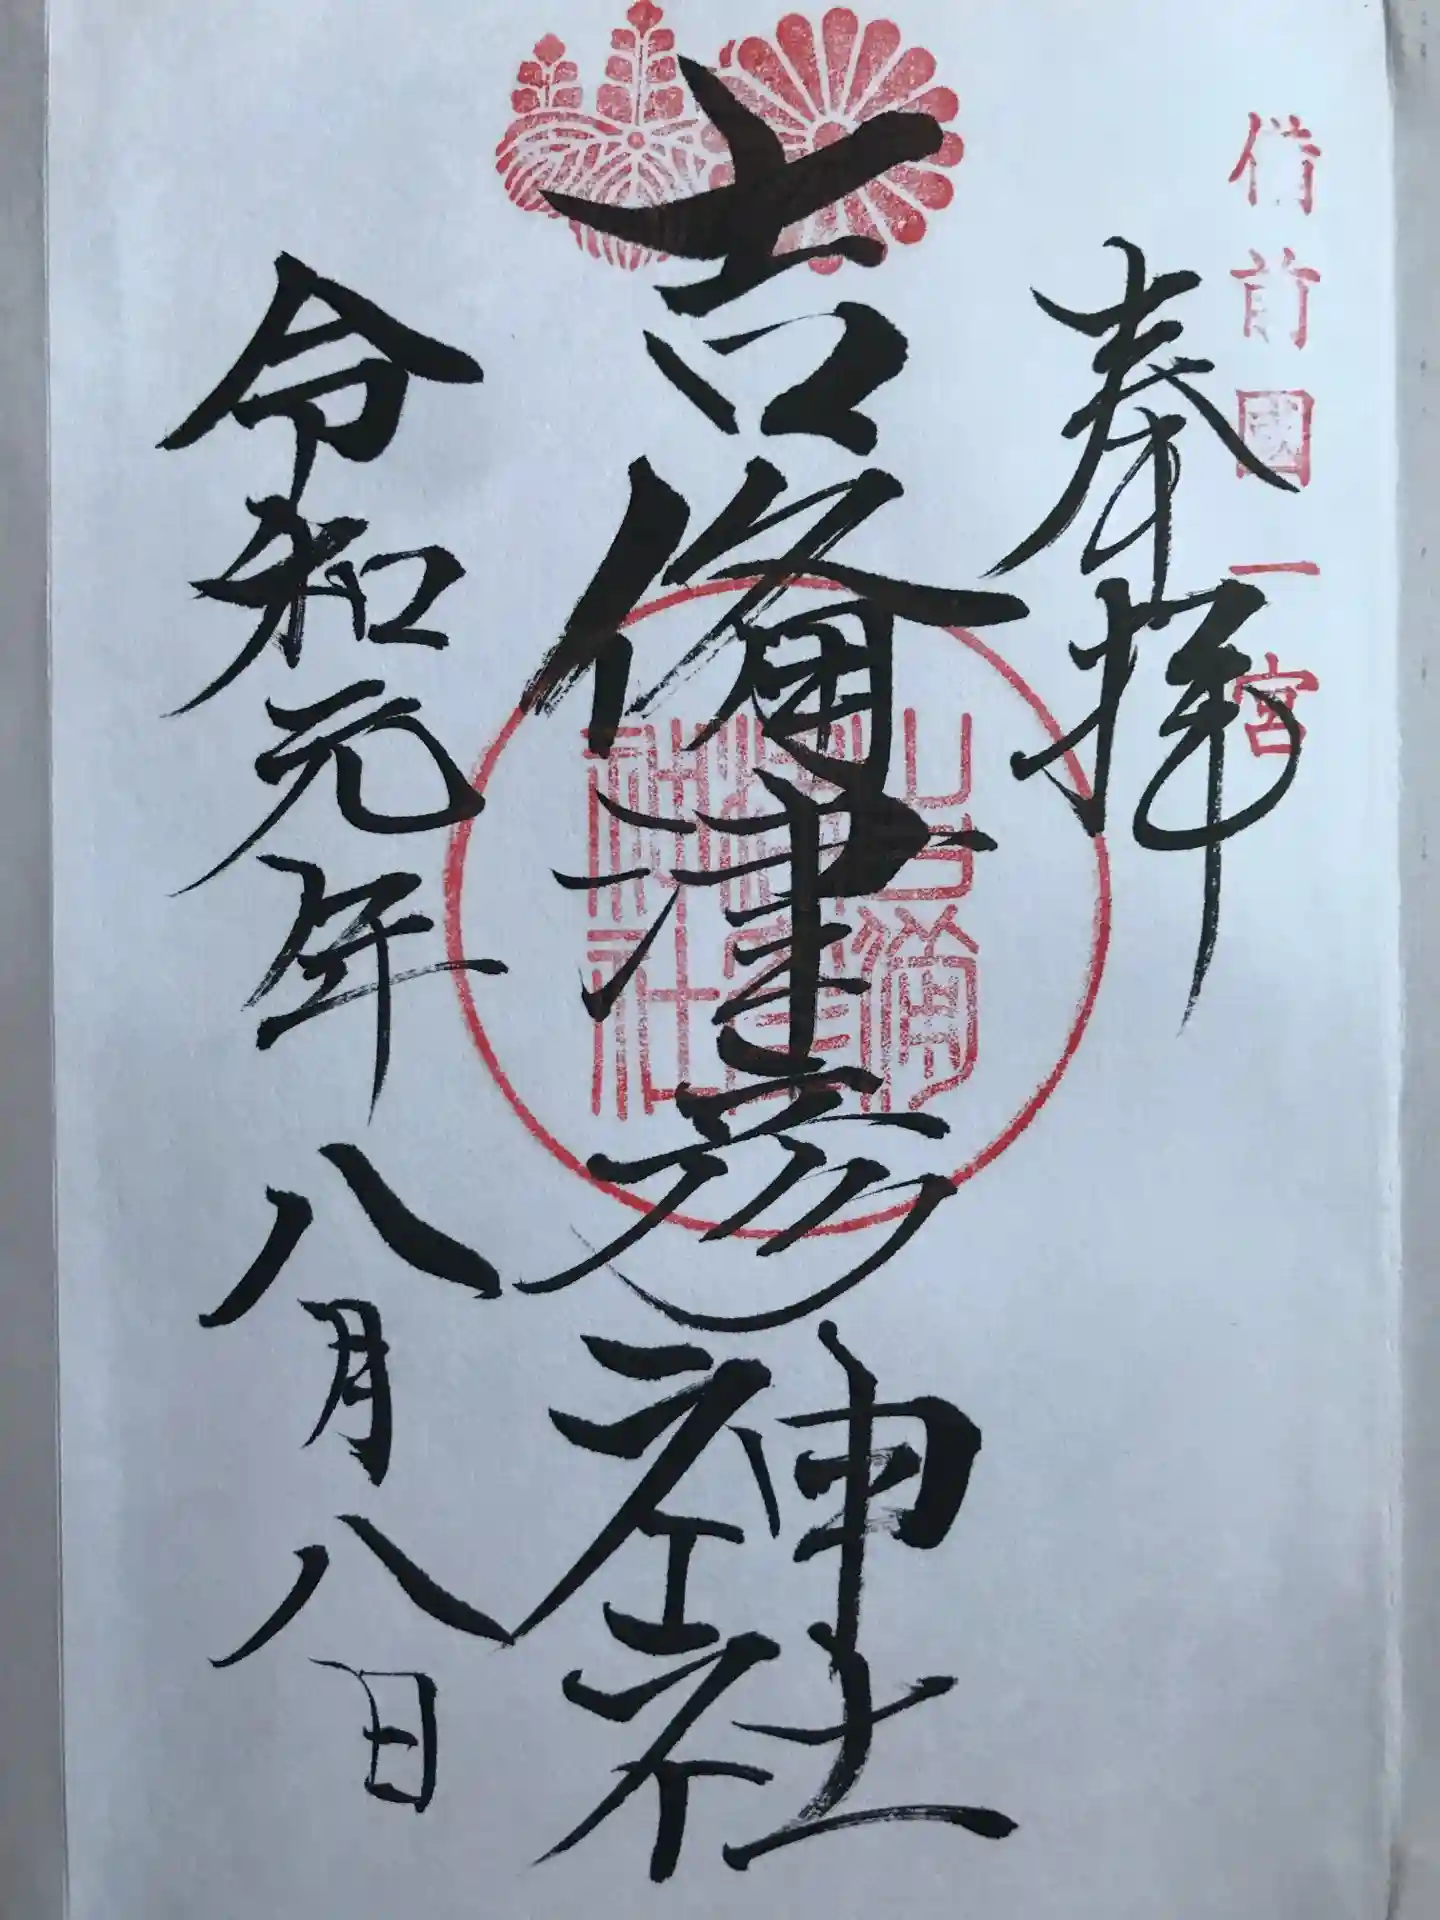 備前國一宮
奉拝
吉備津彦神社
吉備
津彦
神社
令和元年八月八日